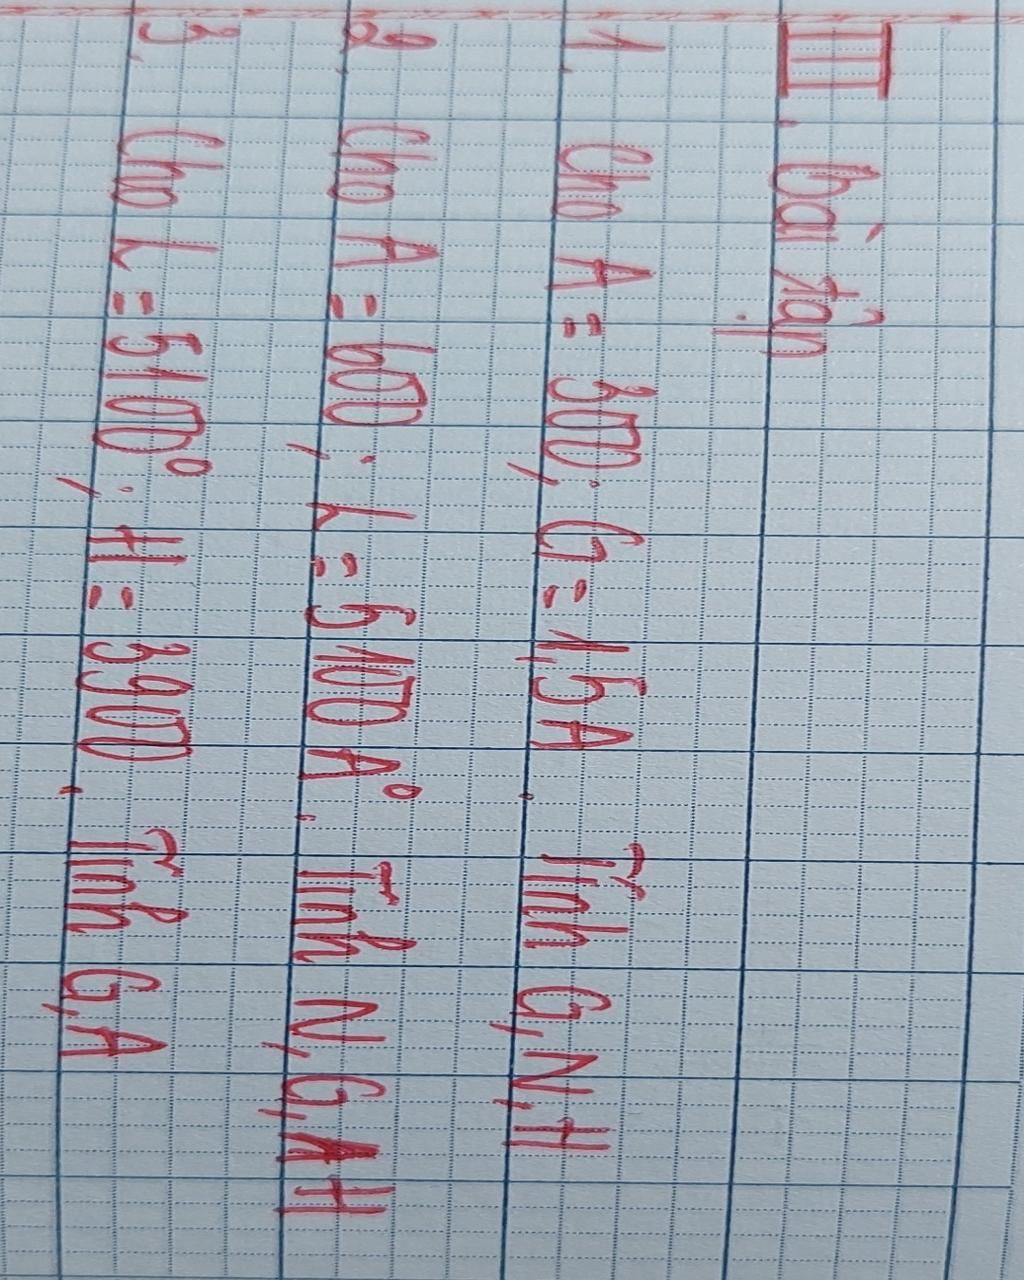 III. bài tập
1. Cho A = 300; G = 1,5A. Tính G, N, H
2. Cho A = 600; L = 5100 A°. Tính N, G, H
3. Cho L = 5100°; H = 3900. Tính G, A